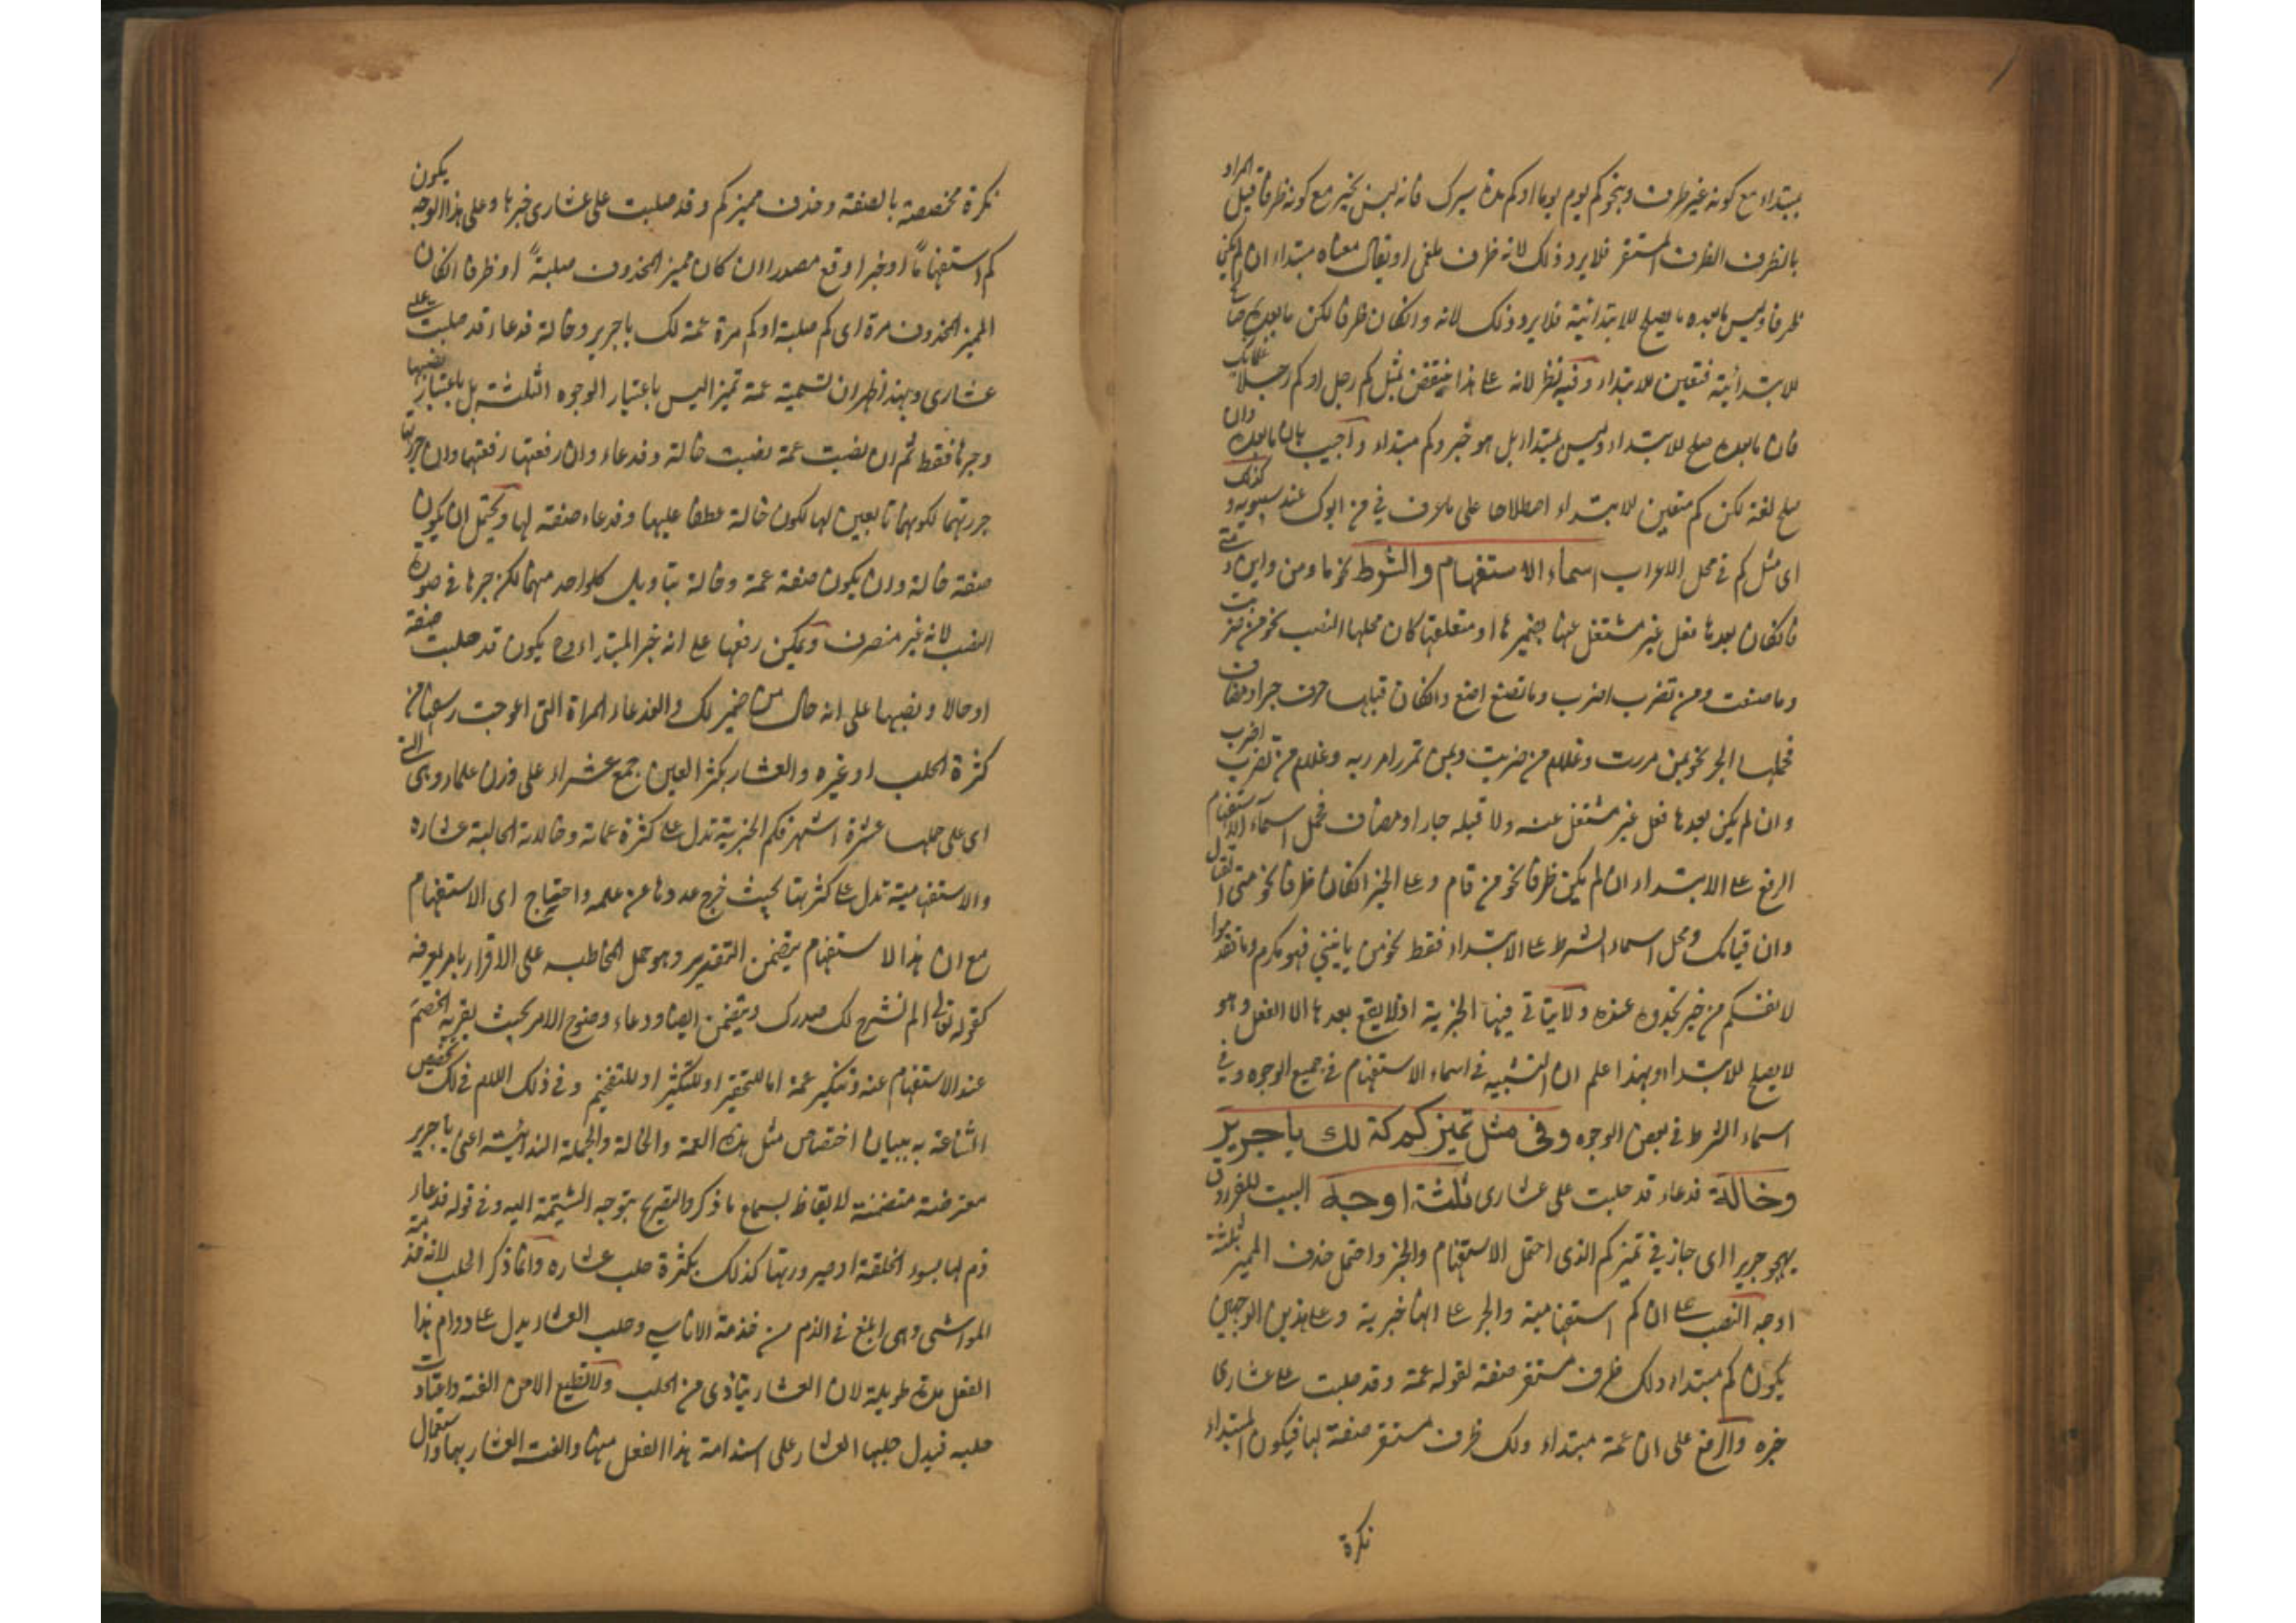 مبتداء مع كونه غير ظرف وبنحو كم يوم يوما او كم مدة سيرك فانه ليس بخبر مع كونه ظرفا قيل المراد
بالظرف الظرف المستقر فلا يرد ذلك لانه ظرف ملغى او يقال معناه مبتداء ان لم يكن
ظرفا وليس مابعده ما يصلح للابتدائية فلا يرد ذلك لانه وانكان ظرفا لكن مابعده صالح
للابتدائية فتعين للابتداء وفيه نظر لانه على هذا ينتقض بمثل كم رجل او كم رجلا غلامك
فان مابعده صلح للابتداء وليس بمبتدا بل هو خبر وكم مبتداء واجيب بان مابعده وان
صلح لغة لكن كم متعين للابتداء اصطلاحا على ما عرف في من ابوك عند سيبويه وكذلك
اى مثل كم في محل الاعراب اسماء الاستفهام والشرط نحو ما ومن واين ومتى
فانكان بعدها فعل غير مشتغل عنها بضميرها او متعلقها كان محلها النصب نحو من ضربت
وما صنعت ومن تضرب اضرب وما تصنع اصنع وانكان قبلها حرف جر او مضاف
فمحلها الجر نحو بمن مررت وغلام من ضربت وبمن تمرر امرر به وغلام من تضرب اضرب
وان لم يكن بعدها فعل غير مشتغل عنه ولا قبله جار او مضاف فمحل اسماء الاستفهام
الرفع على الابتداء ان لم يكن ظرفا نحو من قام وعلى الخبر انكان ظرفا نحو متى القتال
واين قيامك ومحل اسماء الشرط على الابتداء فقط نحو من يأتينى فهو مكرم وما تقدموا
لانفسكم من خير تجدوه عنده ولا يتاتى فيها الخبرية اذ لا يقع بعدها الا الفعل وهو
لا يصلح للابتداء وبهذا علم ان التشبيه في اسماء الاستفهام في جميع الوجوه وفي
اسماء الشرط في بعض الوجوه وفى مثل تميز كم عمة لك يا جرير
وخالة فدعاء قد حلبت على عشارى ثلثة اوجه البيت للفرزدق
يهجو جريرا اى جاز في تميز كم الذى احتمل الاستفهام والخبر واحتمل حذف المميز ثلثة
اوجه النصب على ان كم استفهامية والجر على انها خبرية وعلى هذين الوجهين
يكون كم مبتداء ولك ظرف مستقر صفة لقوله عمة وقد حلبت على عشارى
خبره والرفع على ان عمة مبتداء ولك ظرف مستقر صفة لها فيكون المبتداء
نكرة
نكرة مخصصة بالصفة وحذف مميز كم وقد حلبت على عشارى خبرها وعلى هذا الوجه يكون
كم استفهاما او خبرا وقع مصدرا ان كان مميز المحذوف حلبة او ظرفا انكان
المميز المحذوف مرة اى كم حلبة او كم مرة عمة لك يا جرير وخالة فدعاء قد حلبت على
عشارى وبهذا ظهر ان تسمية عمة تميزا ليس باعتبار الوجوه الثلثة بل باعتبار نصبها
وجرها فقط ثم ان نصبت عمة نصبت خالة وفدعاء وان رفعتها رفعتها وان جررتها
جررتهما لكونهما تابعين لها لكون خالة عطفا عليها وفدعاء صفة لها ويحتمل ان يكون
صفة خالة وان يكون صفة عمة وخالة بتاويل كلواحد منهما لكن جرها في صورة
النصب لانه غير منصرف ويمكن رفعها على انه خبر المبتداء وح يكون قد حلبت صفة
او حالا ونصبها على انه حال من ضمير لك والفدعاء المراة التى اعوجت رسغها من
كثرة الحلب او غيره والعشار بكسر العين جمع عشراء على وزن علماء وهى التى
اى على حملها عشرة اشهر فكم الخبرية تدل على كثرة عماته وخالاته الحالبة عشاره
والاستفهامية تدل على كثرتها بحيث خرج عددها عن علمه واحتياج اى الاستفهام
مع ان هذا الاستفهام يتضمن التقدير وهو حمل المخاطب على الاقرار بامر يعرفه
كقوله تعالى الم نشرح لك صدرك ويتضمن ايضا ودعاء وضوح الامر بحيث يقربه الخصم
عند الاستفهام عنه وتنكير عمة اما للتحقير او للتكثير او للتفخيم وفي ذلك اللام في لك تخصيص
الشناعة به ببيان اختصاص مثل هذه العمة والخالة والجملة الندائية اعنى يا جرير
معترضة متضمنة لايقاظ لسماع ما ذكر والتقريع بتوجه الشتيمة اليه وفي قوله فدعاء
ذم لها بسوء الخلقة او صيرورتها كذلك بكثرة حلب عشاره وانما ذكر الحلب لانه خدمة
المواشى وهى ابلغ في الذم من خدمة الاناسى وحلب العشار يدل على دوام هذا
الفعل مدة طويلة لان العشار يتاذى من الحلب ولا تطيع الا من الفته واعتادت
حلبه فيدل حلبها العشار على استدامة هذا الفعل منها والفت العشار بها واستعمال